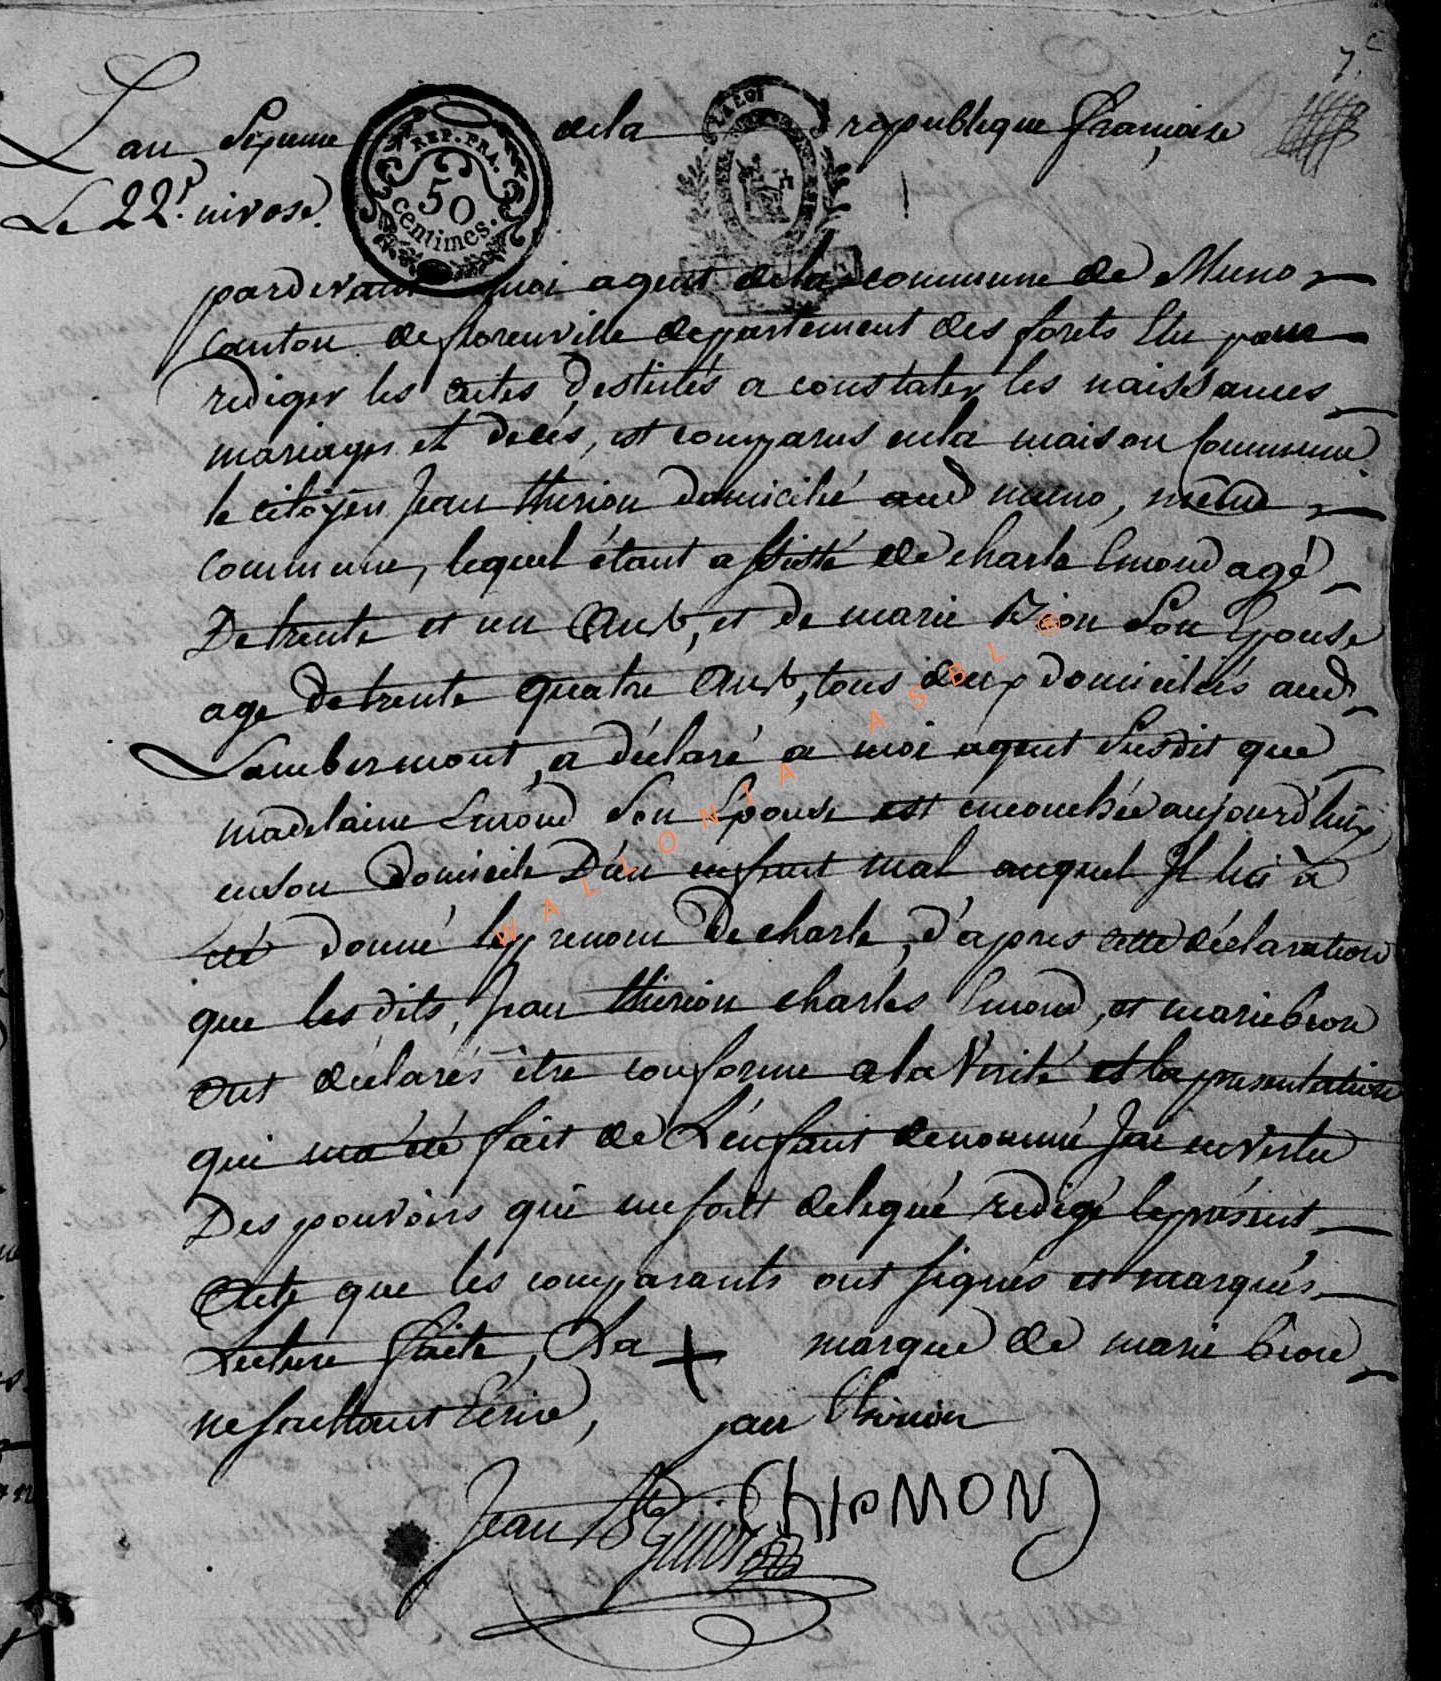 7e
L'an Septieme de la republique française
Le 22e. nivose.
REP. FRA.
50
centimes.
LA LOI
pardevant moi agent dela commune de Muno
canton de florenville departement des forets Elu pour
rediger les actes destinés a constater les naissances
mariages et decés, est comparus enla maison Commune
le citoyen Jean thirion domicilié aud muno, même
commune, lequel étant assisté de charle Emond agé
De trente et un ans, et de marie Bion son Epouse
age de trente quatre ans, tous deux domiciliés aud
Lambermont, a déclaré a moi agent susdit que
madelaine Emond son Epouse est encouchée aujourd'huy
enson domicile D'un enfant mal auquel Il lui à
été donné le prenom De charle, d'apres cette déclaration
que les dits, Jean thirion charles Emond, et marie bion
ont déclarés être conforme a la Vérité et la presentation
qui ma été fait de L'enfant denommé Jai en vertu
Des pouvoirs qui me sont delegué redigé le présent
Acte que les comparants ont signés et marqués
Lecture faite, La + marque de marie bion
ne sachant Ecrire, jan thirion
Jean Bte Guiot
WALLONIA ASBL ®